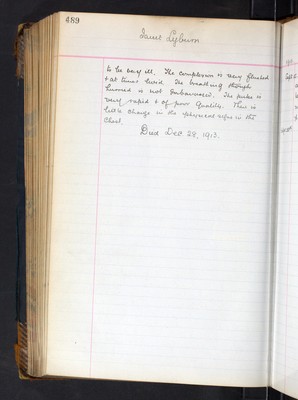 489
Janet Lyburn
to be very ill. The complexion is very flushed
& at times livid. The breathing though
hurried is not embarrassed. The pulse is
very rapid & of poor quality. There is
little change in the physical signs in the
chest.
Died Dec. 28, 1913.